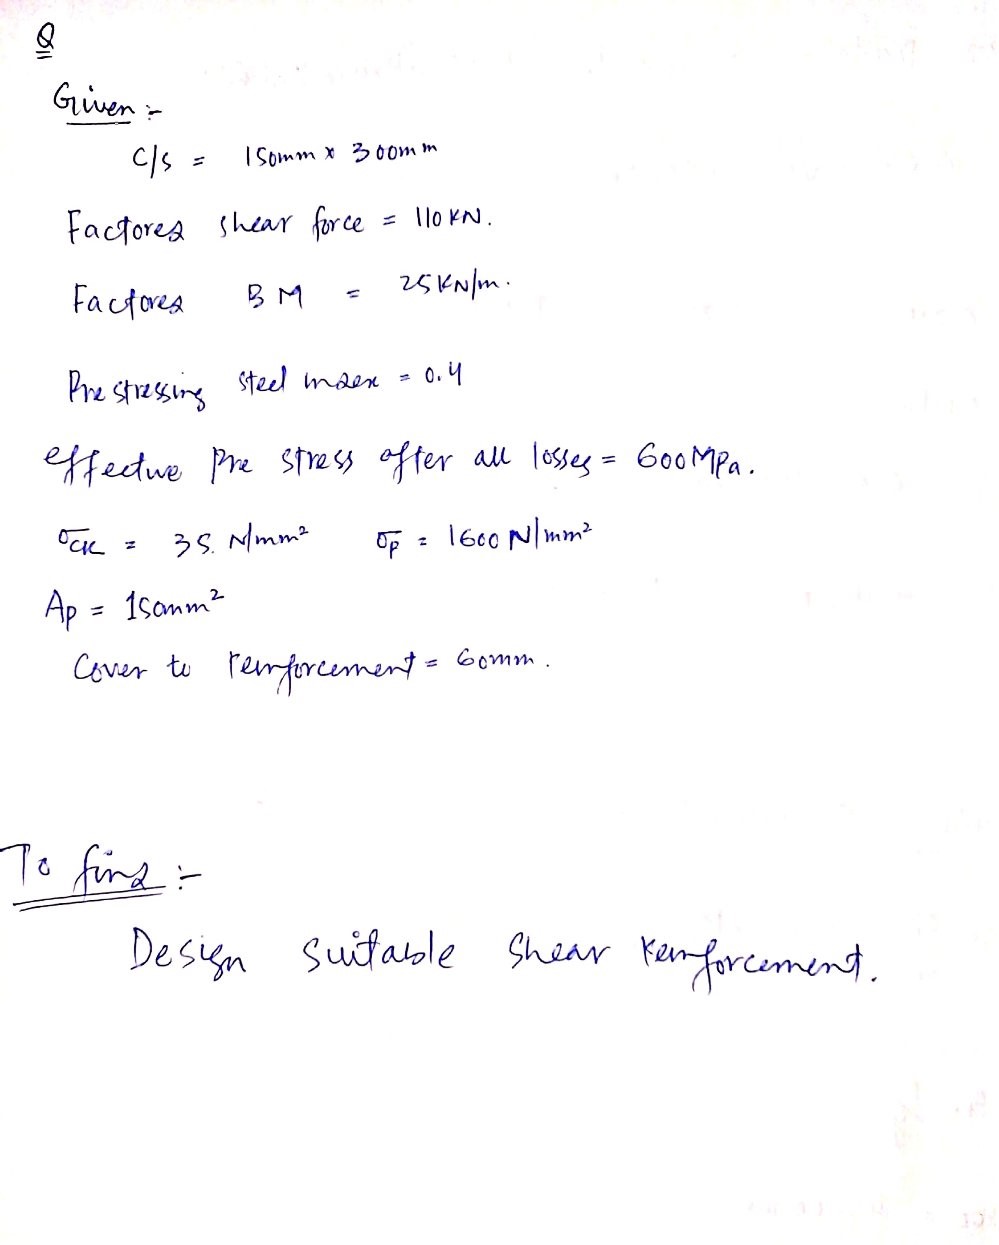 Q
Given :-
C/s = 150mm x 300mm
Factored shear force = 110 KN.
Factored BM = 25 KN/m.
Prestressing steel index = 0.4
effective Pre stress after all losses = 600MPa.
σck = 35. N/mm² σp = 1600 N/mm²
Ap = 150mm²
Cover to reinforcement = 60mm.
To find :-
Design suitable shear reinforcement.